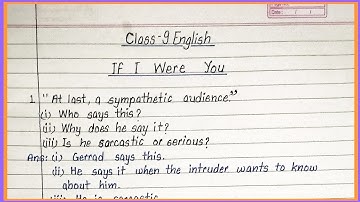 Class-9 English
If I Were You
1. "At last, a sympathetic audience."
(i) Who says this?
(ii) Why does he say it?
(iii) Is he sarcastic or serious?
Ans: (i) Gerrad says this.
(ii) He says it when the intruder wants to know
about him.
(iii) He is sarcastic